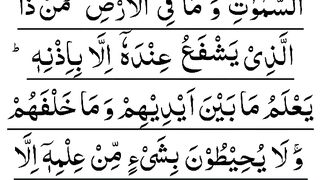 السَّمٰوٰتِ وَ مَا فِی الْاَرْضِ ؕ مَنْ ذَا
الَّذِیْ یَشْفَعُ عِنْدَهٗۤ اِلَّا بِاِذْنِهٖ ؕ
یَعْلَمُ مَا بَیْنَ اَیْدِیْهِمْ وَ مَا خَلْفَهُمْ
وَ لَا یُحِیْطُوْنَ بِشَیْءٍ مِّنْ عِلْمِهٖۤ اِلَّا